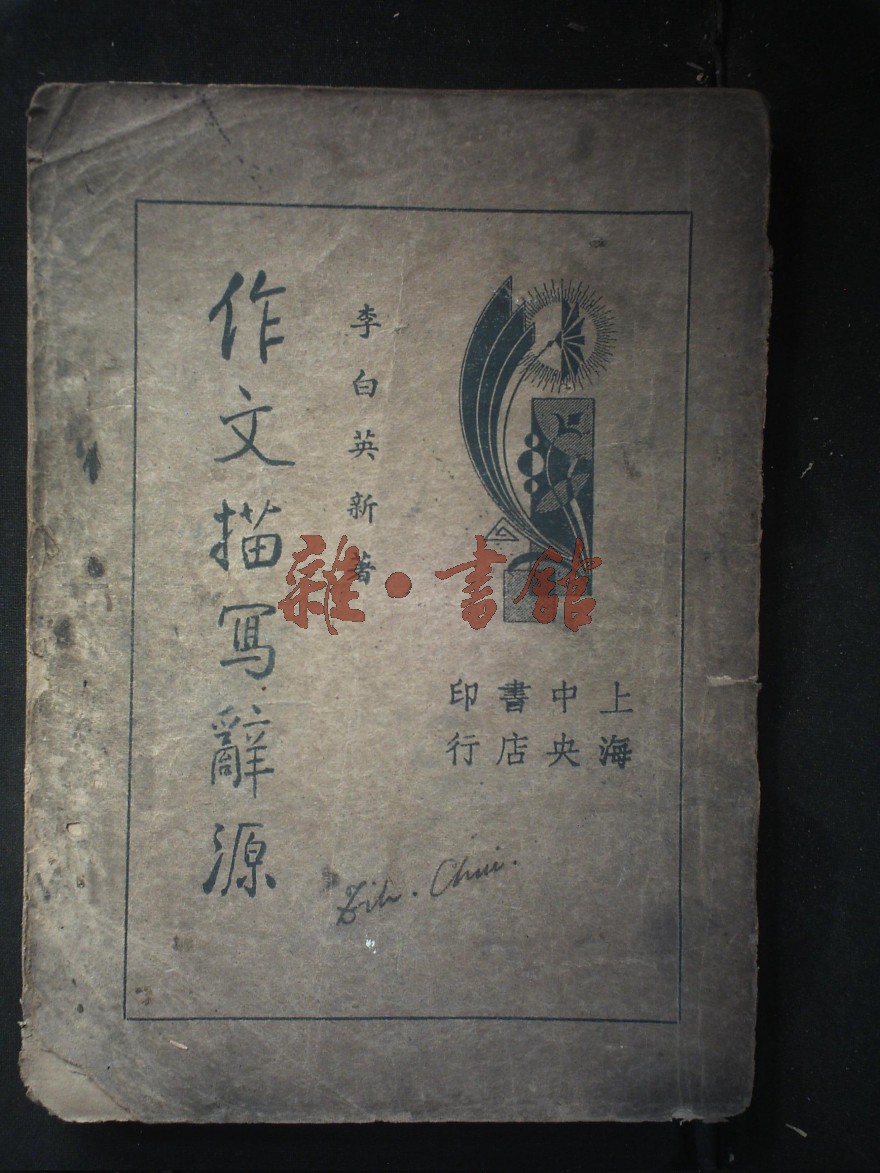 作文描寫辭源
李白英新著
上海
中央
書店
印行
雜·書館